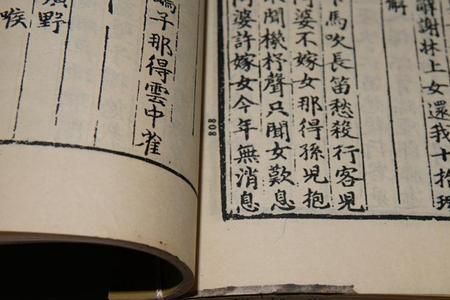 解謝林上女還我十指環
解
下馬吹長笛愁殺行客兒
阿婆不嫁女那得孫兒抱
不聞機杼聲只聞女歎息
阿婆許嫁女今年無消息
808
鷂子那得雲中雀
曠野
喉